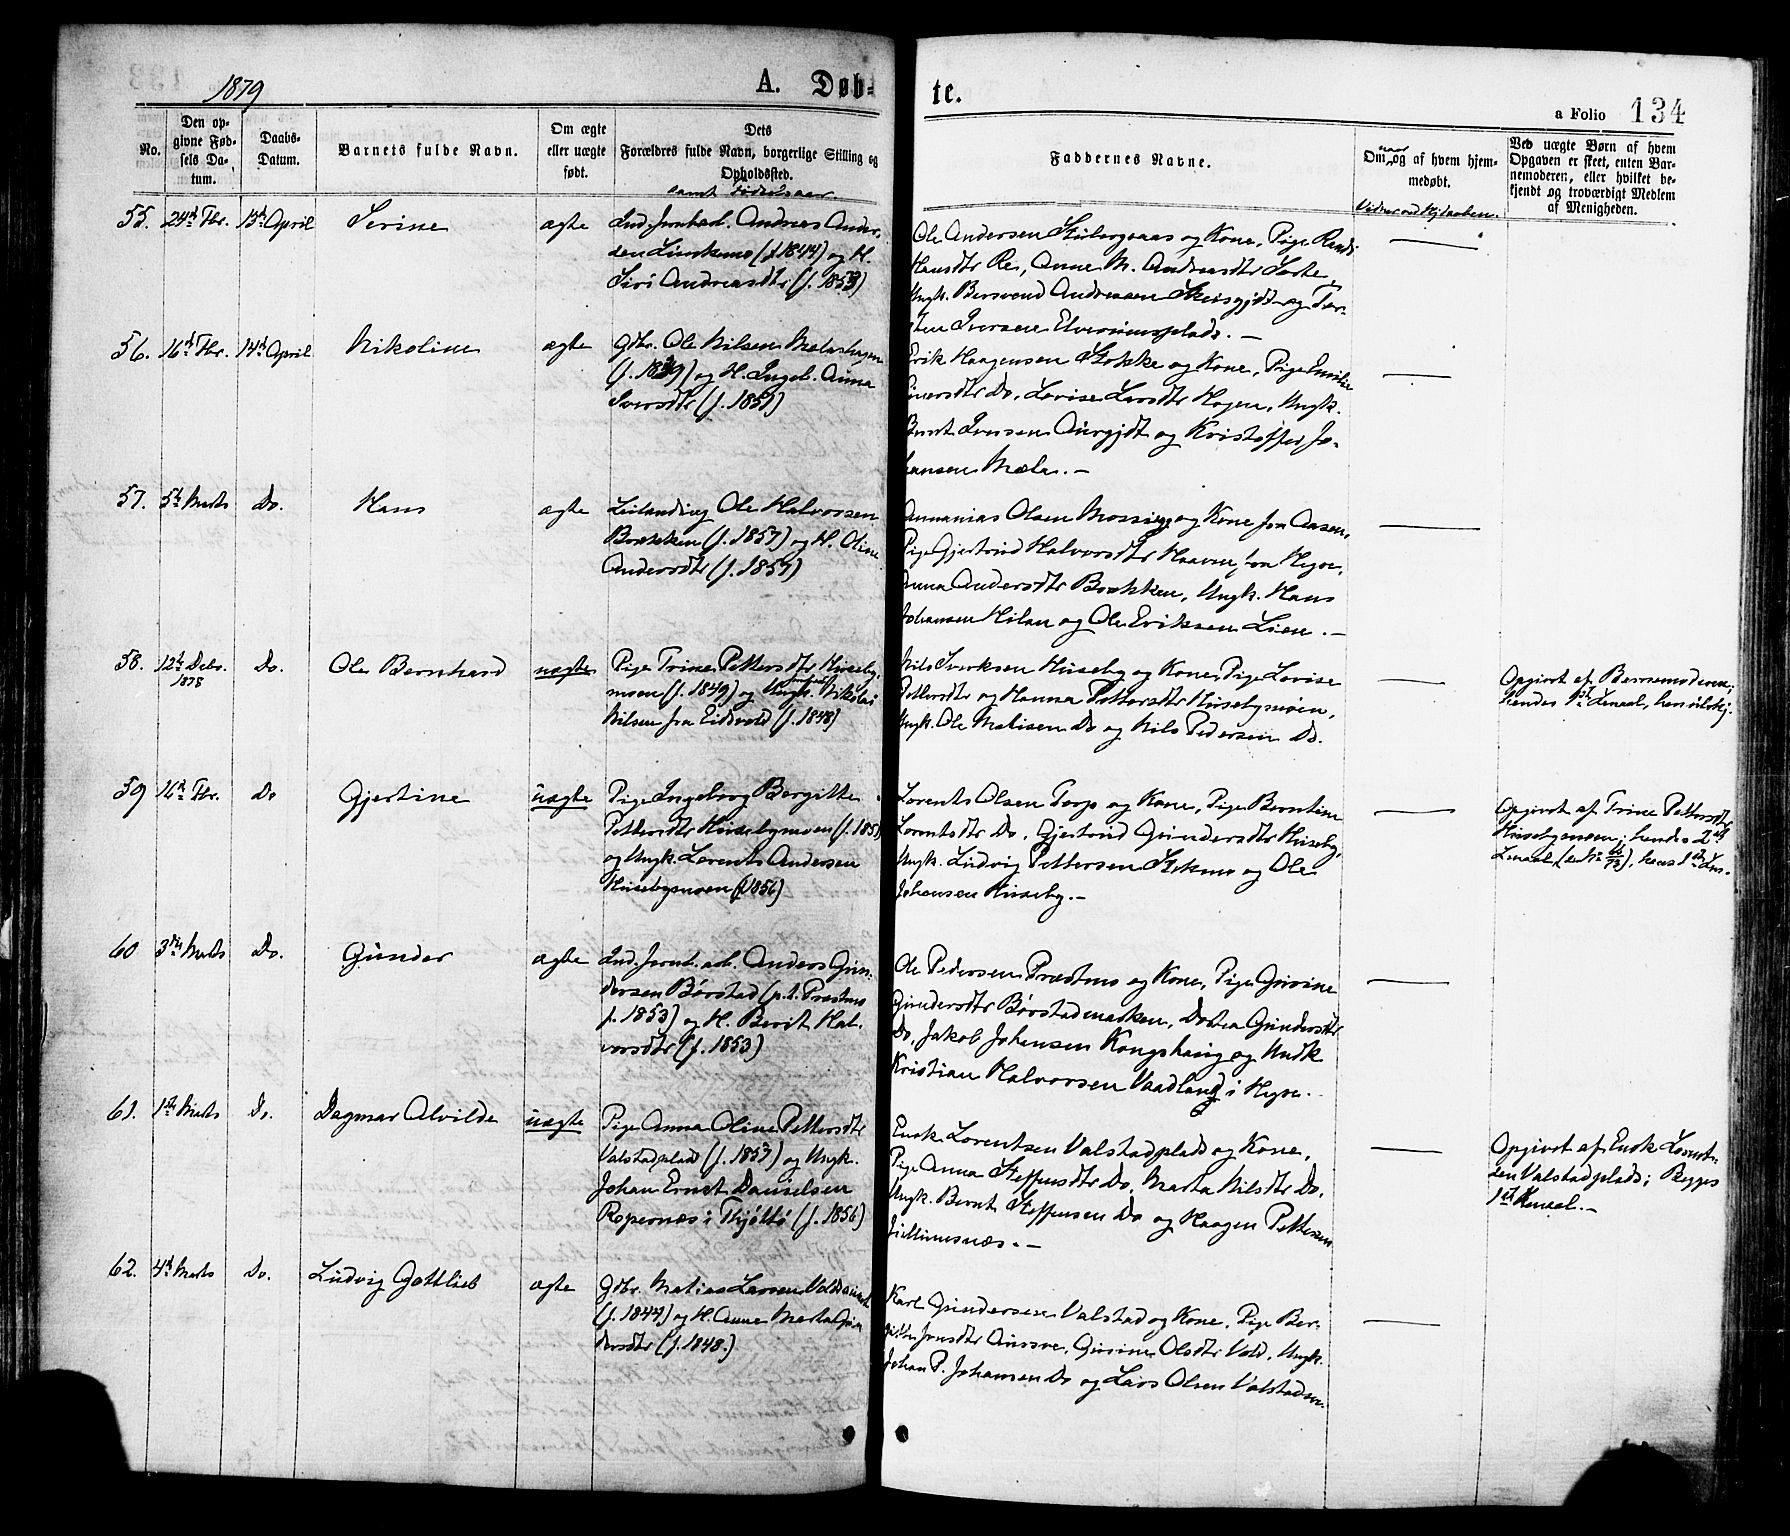 1879
A. Døb-
te.
a Folio 134
No.
Den op-
givne Fød-
sels Da-
tum.
Daabs-
Datum.
Barnets fulde Navn.
Om ægte
eller uægte
født.
Dets
Forældres fulde Navn, borgerlige Stilling og
Opholdssted.
samt Fødselsaar.
Faddernes Navne.
Om, og af hvem hjem-
naar
medøbt.
Ved uægte Børn af hvem
Opgaven er skeet, enten Bar-
nemoderen, eller hvilket be-
kjendt og troværdigt Medlem
af Menigheden.
55. 24de Fbr. 13de April Serine ægte
Ind. Jernbarb. Andreas Ander-
sen (f. 1844) og H.
Siri Andreasdtr (f. 1853)
Ole Andersen og Kone, Pige Randi
Hansdtr Re, Anne M. Andreasdtr
Ungk. Bersvend Andreasen og Tor-
sten Iversen
56. 16de Fbr. 14de April Nikoline ægte
Gdbr. Ole Nilsen
(f. 1839) og H. Ingeb. Anna
Iversdtr (f. 1851)
Erik Haagensen Stokke og Kone, Pige Emilie
Einersdtr Do, Lovise Larsdtr Hagen, Ungk.
Bernt Iversen og Kristoffer Jo-
hansen Mæla. -
57. 5te Marts Do. Hans ægte
Leilænding Ole Halvorsen
Brækken (f. 1857) og H. Oline
Andersdtr (f. 1857)
Annanias Olsen og Kone fra Aasen,
Pige Gjertrud Halvorsdtr fra
Anna Andersdtr Brækken, Ungk. Hans
Johansen Milan og Ole Eriksen Lien. -
58. 12te Debr. Do. Ole Bernhard uægte
1878
Pige Trine Pettersdtr Huseby-
moen (f. 1849) og Ungk. Nikolai
Nilsen fra Eidsvold (f. 1848)
Nils Sverksen Huseby og Kone, Pige Lovise
Pettersdtr og Hanna Pettersdtr Husebymoen,
Ungk. Ole Matisen Do og Nils Pedersen Do.
Opgivet af Barnemoderen;
hendes 1ste Lemaal,
59 16de Fbr. Do Gjertine uægte
Pige Ingeborg Bergitte
Pettersdtr Husebymoen (f. 185
og Ungk. Lorents Andersen
Husebymoen (f. 1856)
Lorents Olsen Torp og Kone, Pige Berntine
Lorentsdtr Do, Gjertrud Gundersdtr Huseby,
Ungk. Ludvig Pettersen og Ole
Johansen Huseby. -
Opgivet af Trine Pettersdtr
Husebymoen; hendes 2det
Lemaal, hans 1ste Lem.
60 3die Marts Do. Gunder ægte
Ind. Jernb. arb. Anders Gun-
dersen Børstad (p. t. Præstmo
f. 1853) og H. Berit Hal-
vorsdtr (f. 1853)
Ole Pedersen Præstmo og Kone, Pige Gurine
Gundersdtr Børstadmarken, Dortea Gundersdtr
Do, Jakob Johansen Kongshaug og Undk
Kristian Halvorsen Vaadland i
61. 1ste Marts Do. Dagmar Alvilde uægte
Pige Anna Oline Pettersdtr
Valstadplads (f. 1853) og Ungk.
Johan Ernst Danielsen
Ropernæs i Thjøttø (f. 1856)
Enok Lorentsen Valstadplads og Kone,
Pige Anna Steffensdtr Do, Marta Nilsdtr Do,
Ungk. Bernt Steffensen Do og Haagen Pettersen
Opgivet af Enok Lorent-
sen Valstadplads; Begges
1ste Lemaal. -
62. 4de Marts Do. Ludvig Gottlieb ægte
Gdbr. Matias Larsen
(f. 1844) og H. Anne Marta Gun-
dersdtr (f. 1848.)
Karl Gundersen Valstad og Kone, Pige Ber-
Jonsdtr Gurine Olsdtr Vold, Ungk.
Johan P. Johansen Do og Lars Olsen